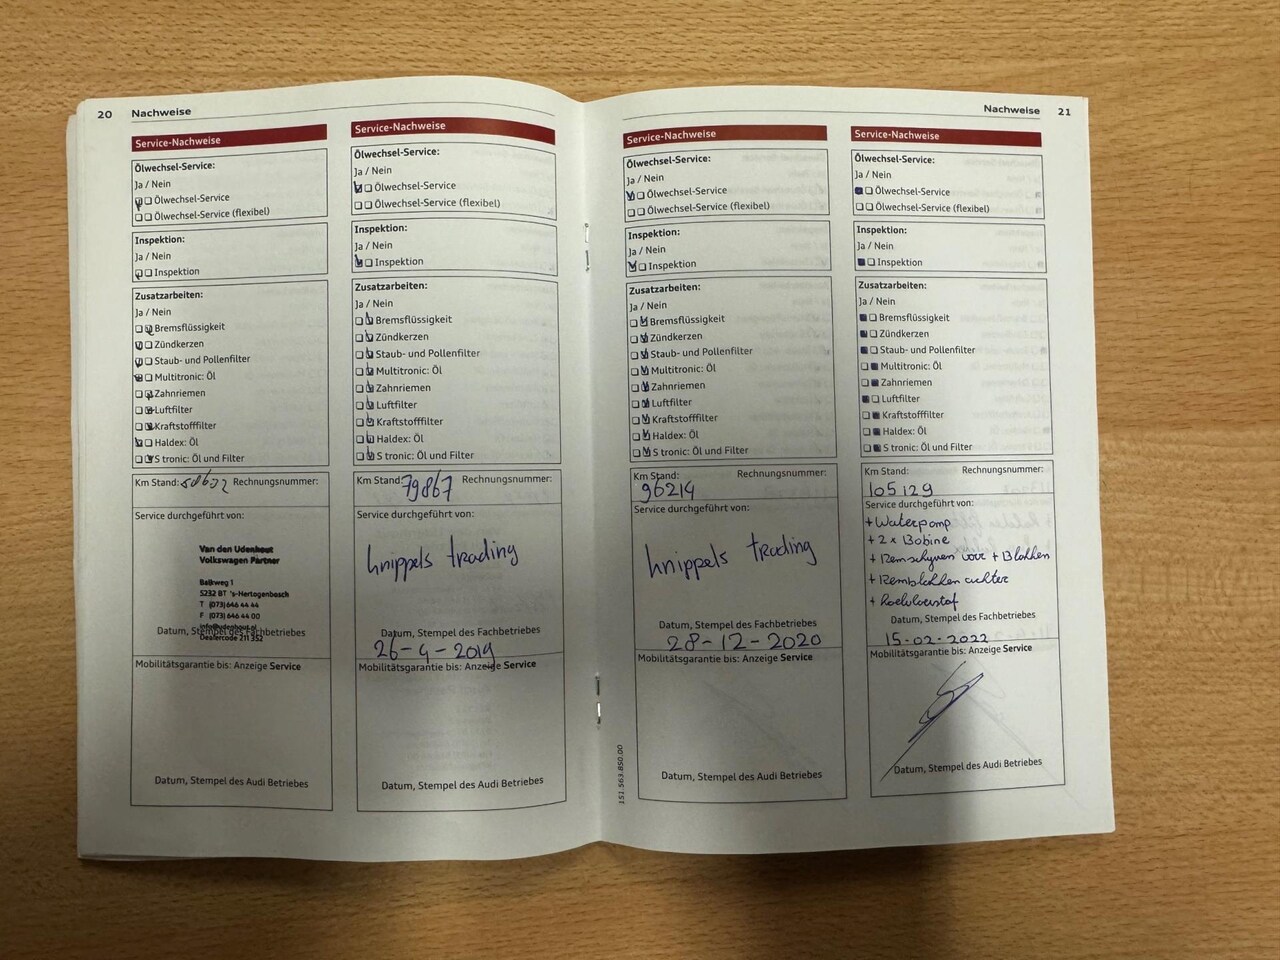 20 Nachweise
Service-Nachweise
Ölwechsel-Service:
Ja / Nein
Ölwechsel-Service
Ölwechsel-Service (flexibel)
Inspektion:
Ja / Nein
Inspektion
Zusatzarbeiten:
Ja / Nein
Bremsflüssigkeit
Zündkerzen
Staub- und Pollenfilter
Multitronic: Öl
Zahnriemen
Luftfilter
Kraftstofffilter
Haldex: Öl
S tronic: Öl und Filter
Km Stand: Rechnungsnummer:
Service durchgeführt von:
Van den Udenhout
Volkswagen Partner
Balkweg 1
5232 BT 's-Hertogenbosch
T (073) 646 44 44
F (073) 646 44 00
info@udenhout.nl
Datum, Stempel des Fachbetriebes
Dealercode 211 352
Mobilitätsgarantie bis: Anzeige Service
Datum, Stempel des Audi Betriebes
Service-Nachweise
Ölwechsel-Service:
Ja / Nein
Ölwechsel-Service
Ölwechsel-Service (flexibel)
Inspektion:
Ja / Nein
Inspektion
Zusatzarbeiten:
Ja / Nein
Bremsflüssigkeit
Zündkerzen
Staub- und Pollenfilter
Multitronic: Öl
Zahnriemen
Luftfilter
Kraftstofffilter
Haldex: Öl
S tronic: Öl und Filter
Km Stand: 79867 Rechnungsnummer:
Service durchgeführt von:
knippels trading
Datum, Stempel des Fachbetriebes
26-4-2019
Mobilitätsgarantie bis: Anzeige Service
Datum, Stempel des Audi Betriebes
Nachweise 21
Service-Nachweise
Ölwechsel-Service:
Ja / Nein
Ölwechsel-Service
Ölwechsel-Service (flexibel)
Inspektion:
Ja / Nein
Inspektion
Zusatzarbeiten:
Ja / Nein
Bremsflüssigkeit
Zündkerzen
Staub- und Pollenfilter
Multitronic: Öl
Zahnriemen
Luftfilter
Kraftstofffilter
Haldex: Öl
S tronic: Öl und Filter
Km Stand: 96214 Rechnungsnummer:
Service durchgeführt von:
knippels trading
Datum, Stempel des Fachbetriebes
28-12-2020
Mobilitätsgarantie bis: Anzeige Service
Datum, Stempel des Audi Betriebes
151.563.850.00
Service-Nachweise
Ölwechsel-Service:
Ja / Nein
Ölwechsel-Service
Ölwechsel-Service (flexibel)
Inspektion:
Ja / Nein
Inspektion
Zusatzarbeiten:
Ja / Nein
Bremsflüssigkeit
Zündkerzen
Staub- und Pollenfilter
Multitronic: Öl
Zahnriemen
Luftfilter
Kraftstofffilter
Haldex: Öl
S tronic: Öl und Filter
Km Stand: 105129 Rechnungsnummer:
Service durchgeführt von:
+ Waterpomp
+ 2 x Bobine
+ Remschyven voor + Blokken
+ Remblokken achter
+ Koelvloeistof
Datum, Stempel des Fachbetriebes
15-02-2022
Mobilitätsgarantie bis: Anzeige Service
Datum, Stempel des Audi Betriebes